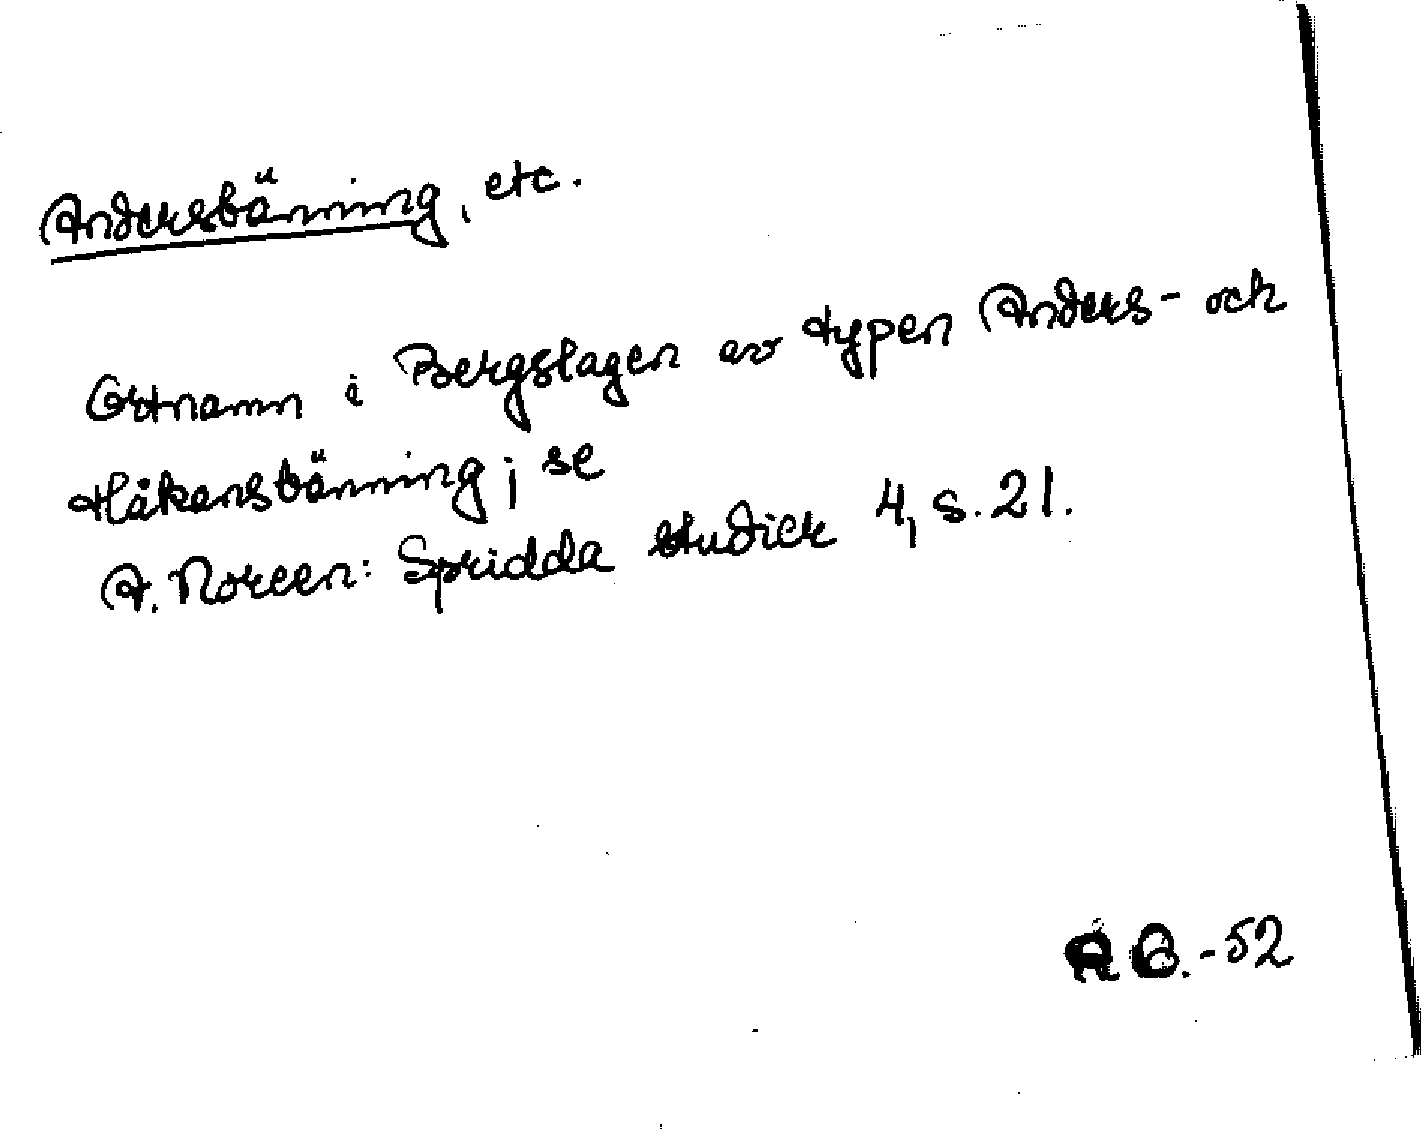 Andersbänning, etc.
Ortnamn i Bergslagen av typen Anders- och
Håkansbänning; se
A. Noreen: Spridda studier 4, s. 21.
-52